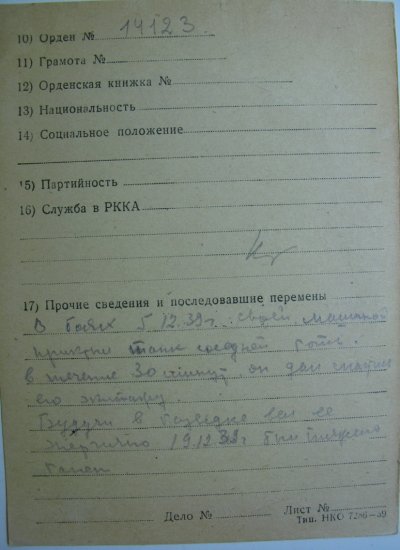 10) Орден № 14123.
11) Грамота №
12) Орденская книжка №
13) Национальность
14) Социальное положение
15) Партийность
16) Служба в РККА
17) Прочие сведения и последовавшие перемены
В боях 5 12.39г. своей машиной
прикрыл танк соседней роты.
в течение 30 минут он дал
его экипажу.
Будучи в разведке вел ее
энергично 19.12 39г был тяжело
ранен
Дело № Лист №
Тип. НКО 7286—39